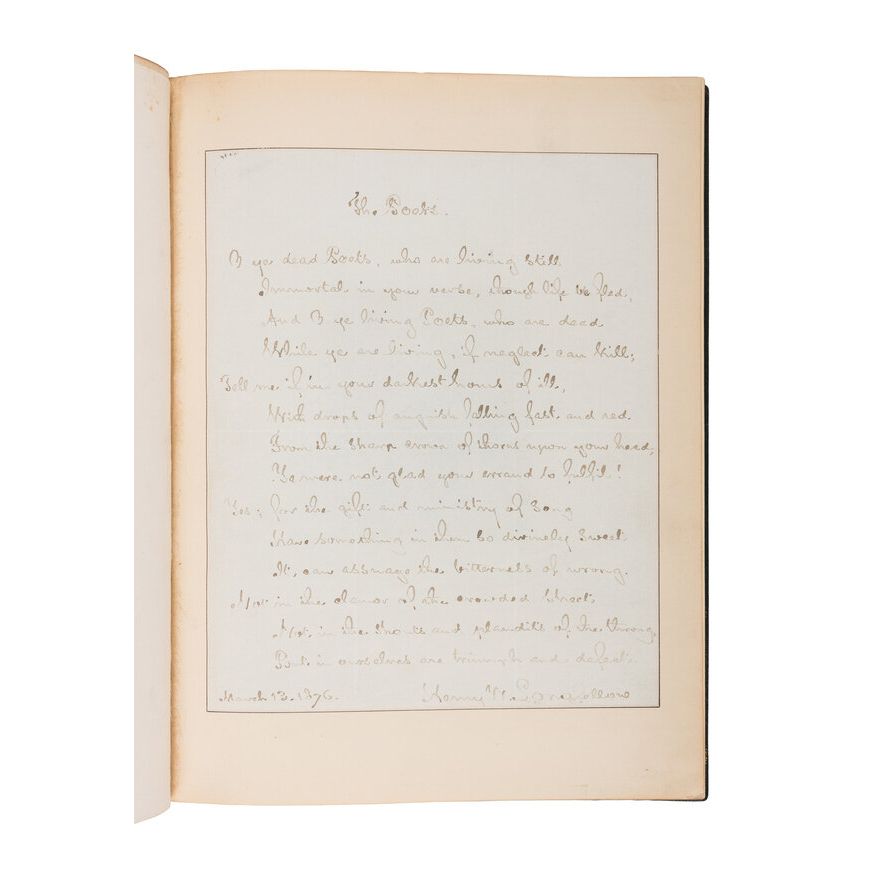 The Poets.
O ye dead Poets, who are living still
Immortal in your verse, though life be fled,
And O ye living Poets, who are dead
While ye are living, if neglect can kill;
Tell me if in your darkest hours of ill,
With drops of anguish falling fast and red
From the sharp crown of thorns upon your head,
Ye were not glad your errand to fulfil!
Yes; for the gift and ministry of Song
Have something in them so divinely sweet
It can assuage the bitterness of wrong.
Not in the clamor of the crowded street,
Not in the shouts and plaudits of the throng,
But in ourselves are triumph and defeat.
March 13. 1876. Henry W. Longfellow